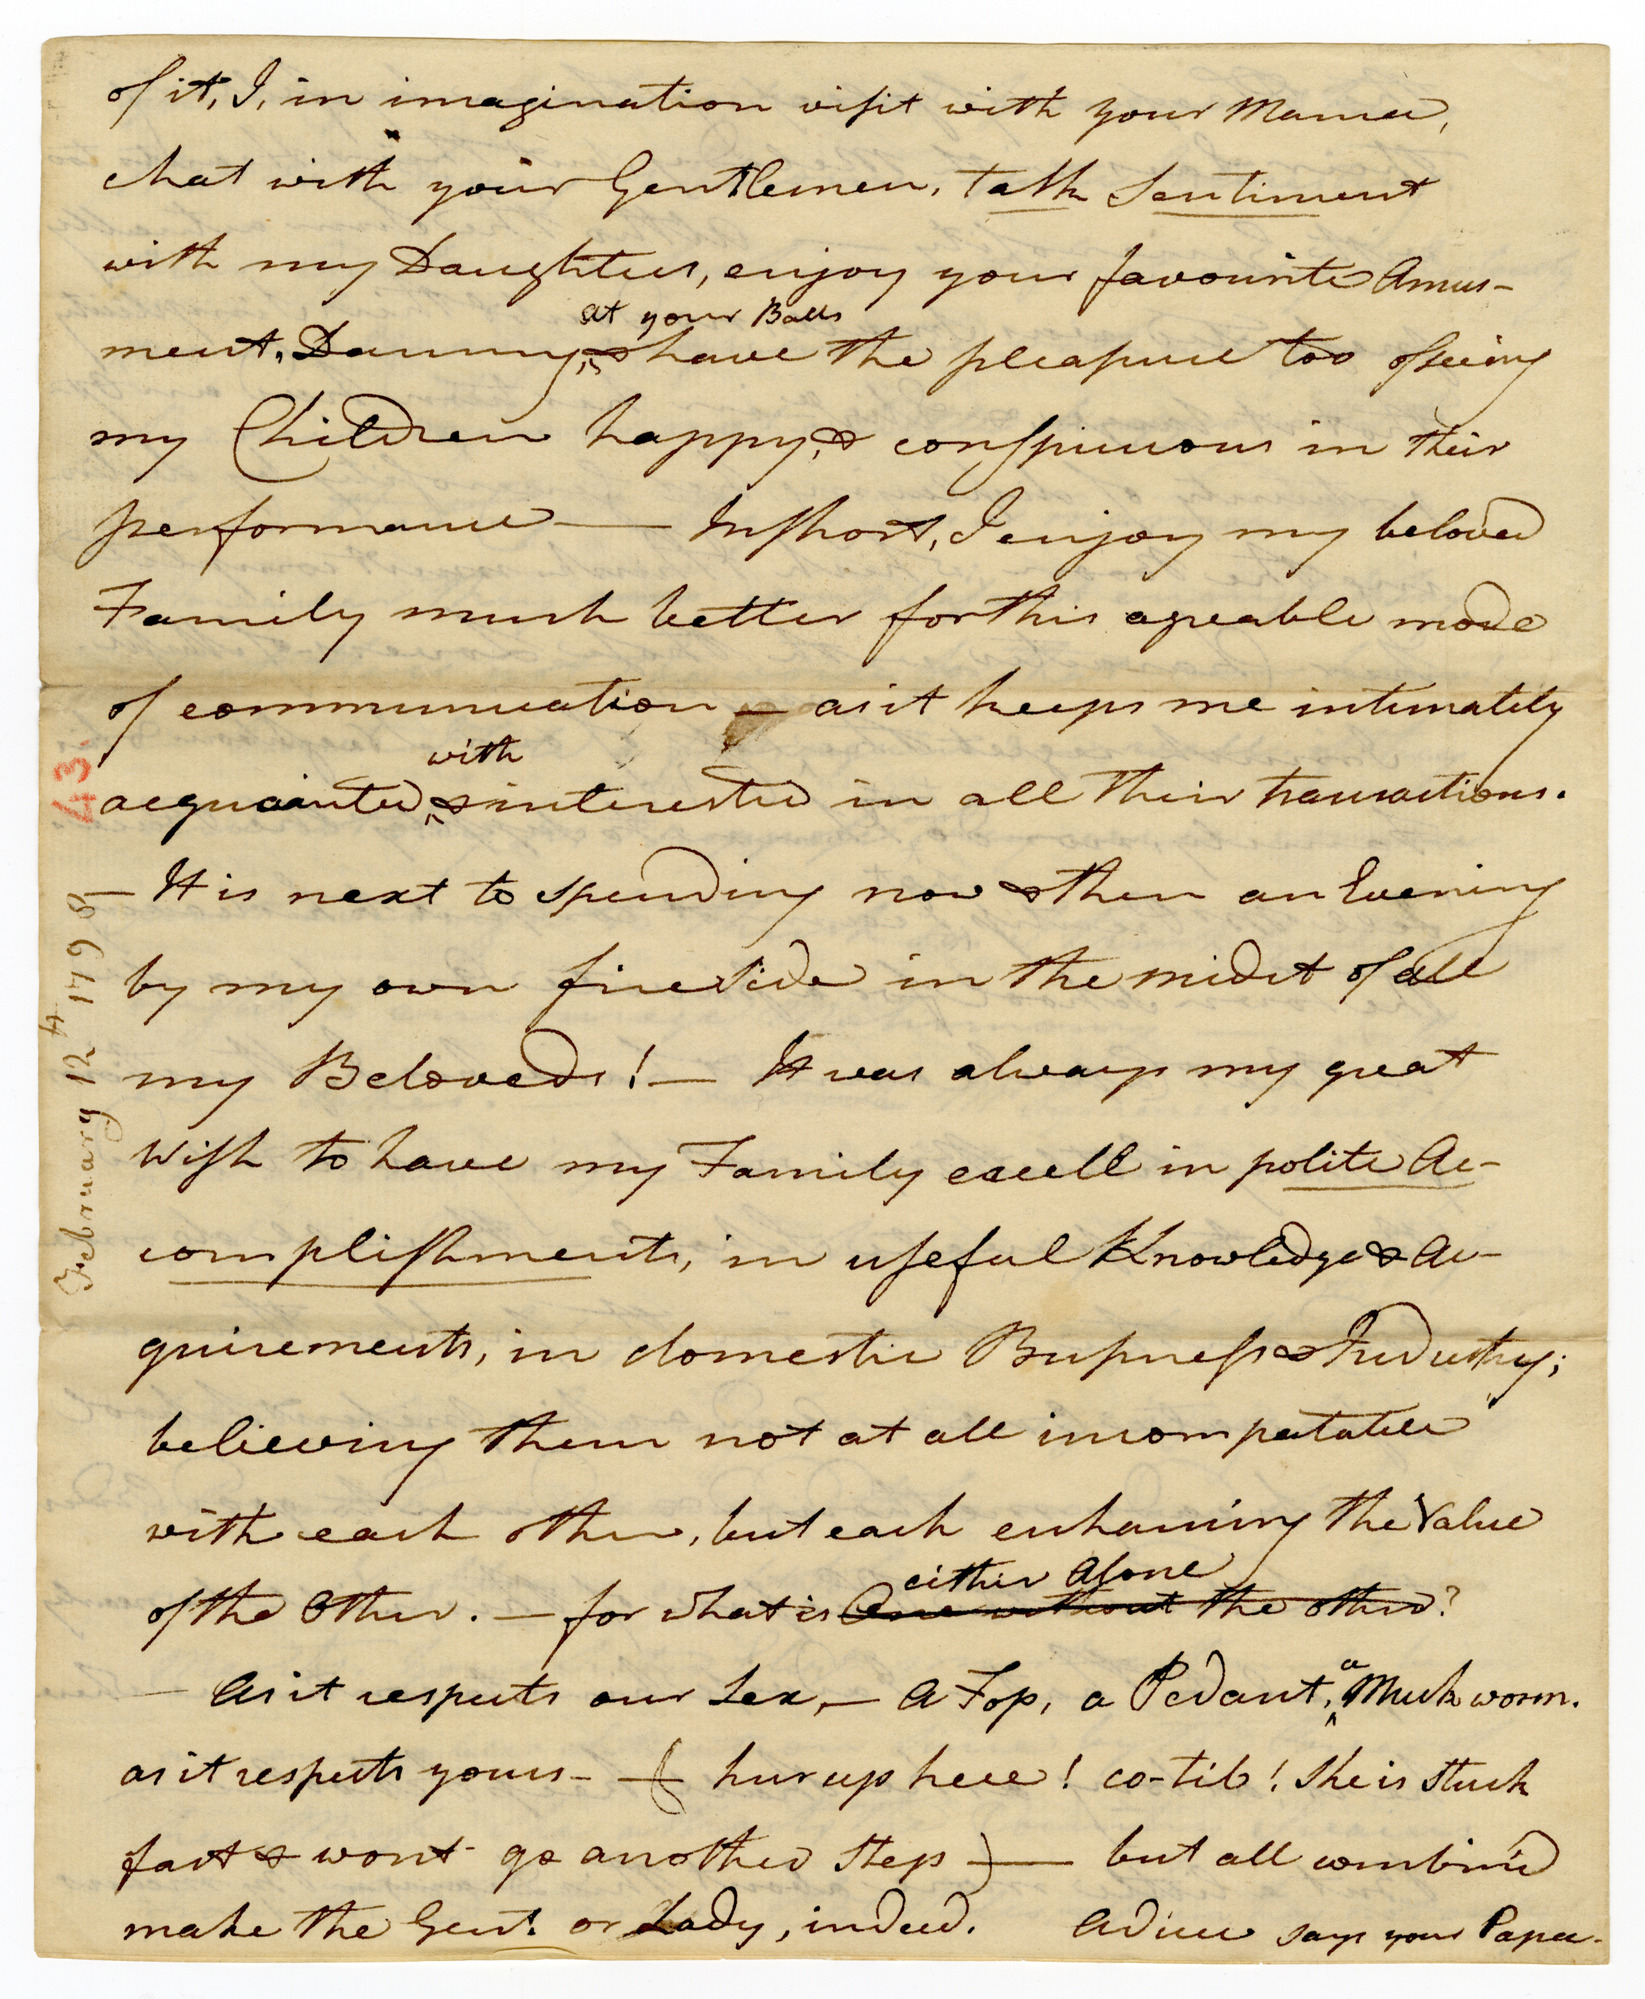 of it, I, in imagination visit with your Mama,
chat with your Gentlemen, talk Sentiment
with my Daughters, enjoy your favourite Amus-
at your Balls
ment, Dancing, & have the pleasure too of seeing
my Children happy, & conspicuous in their
performance — In short, I enjoy my beloved
Family much better for this agreable mode
of communication — as it keeps me intimately
with
acquainted & interested in all their transactions.
— It is next to spending now & then an Evening
by my own fire side in the midst of all
my Beloveds! — It was always my great
Wish to have my Family excell in polite Ac-
complishments, in useful Knowledge & Ac-
quirements, in domestic Business & Industry;
believing them not at all incompatable
with each other, but each enhancing the Value
either alone
of the Other. — for what is One without the other?
— As it respects our Sex, — A Fop, a Pedant, a Muckworm.
as it respects yours — ( hur up here! co-tib! She is stuck
fast & wont go another step ) — but all combin'd
make the Gent. or Lady, indeed. Adieu says your Papa.
February 12th 1798
43.